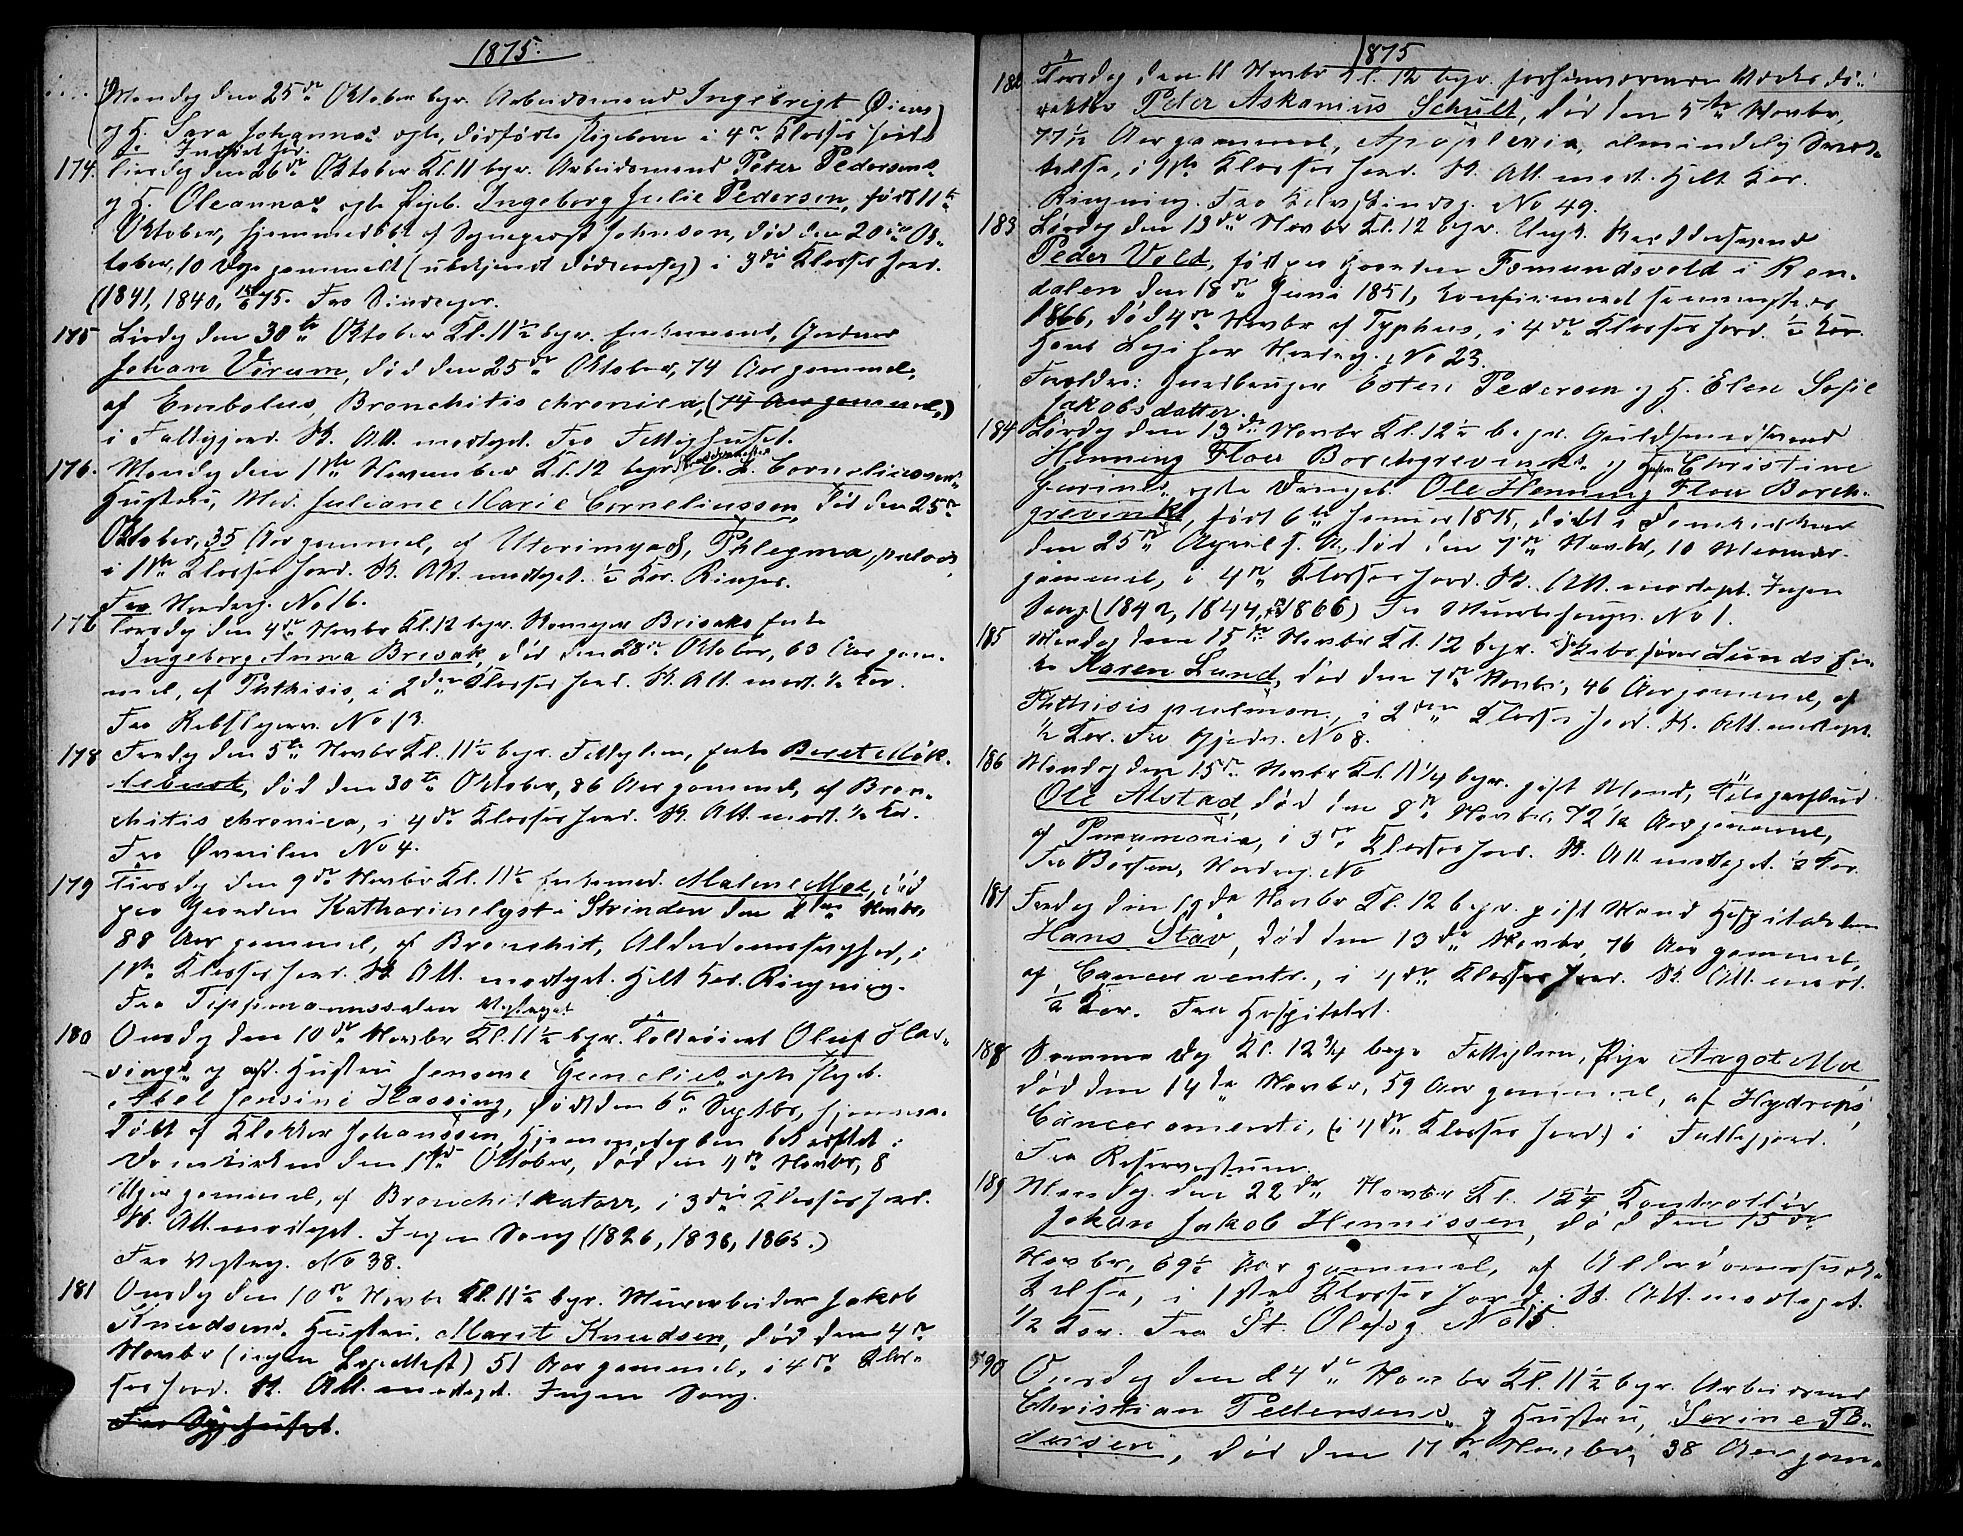 1875.
Mandag den 25de Oktober begr. Arbeidsmand Ingebrigt Øiens
og H. Sara Johannas ægte, dødfødte Pigebarn i 4de Klasses Jord
174. Tirsdag den 26de Oktober Kl. 11 begr. Arbeidsmand Peter Pedersens
og H. Oleannas ægte Pigeb. Ingeborg Julie Pedersen, født 11te
Oktober, hjemmedøbt af Johnsen, død den 20de Ok-
tober, 10 Dage gammelt (ubekjendt Dødsaarsag) i 3die Klasses Jord.
(1841, 1840, 75. Fra Sindsager.
175 Lørdag den 30te Oktober Kl. 11½ begr. Enkemand, Gartner
Johan Virum, død den 25de Oktober, 74 Aar gammel,
af Embolus, Bronchitis chronica, (74 Aar gammel,)
i Fattigjord. Sk. Att. modtaget. Fra Fattighuset.
176. Mandag den 1ste November Kl. 12 begr. C. L. Corneliussens
Hustru, Mad. Juliane Marie Corneliussen, død den 25de
Oktober, 35 Aar gammel, af Phlegma
i 1ste Klasses Jord. Sk. Att. modtaget. ½ Kor. Ringn.
Fra Nordreg. No 16.
176 Torsdag den 4de Novbr Kl. 12 begr. Brevaks Enke
Ingeborg Anna Brevak, død den 28de Oktober, 63 Aar gam-
mel, af Phthisis, i 2den Klasses Jord. Sk. Att. modt. ½ Kor.
Fra Rebslagerv. No 13.
178 Fredag den 5te Novbr Kl. 11½ begr. Fattiglem, Enke Beret Mæk-
lebust, død den 30te Oktober, 86 Aar gammel, af Bron-
chitis chronica, i 4de Klasses Jord. Sk. Att. modt. ½ Kor.
Fra Øvreilen No 4.
179 Tirsdag den 9de Novbr Kl. 11½ Enkemad. Malene Moe, død
paa Gaarden Katharinelyst i Strinden den 2den Novbr,
88 Aar gammel, af Bronchit, Alderdomssvaghed, i
1ste Klasses Jord. Sk. Att. modtaget. Helt Kor. Ringning.
Fra Tippmannssalen
180 Onsdag den 10de Novbr Kl. 11½ begr. Oluf Has-
sings og Hustru Jensine ægte Pigeb.
Abel Jensine Hassing, født den 6te Septbr, hjemme-
døbt af Klokker Johanssen, Hjemmedaaben bekræftet i
Domkirken den 1ste Oktober, død den 4de Novbr, 8
Uger gammel, af Bronchitkatarr, i 3die Klasses Jord.
Sk. Att. modtaget. Ingen Sang (1826, 1836, 1865.)
Fra Vestreg. No 38.
181 Onsdag den 10de Novbr Kl. 11½ begr. Murarbeider Jakob
Knudsens Hustru, Marit Knudsen, død den 4de
Novbr (ingen) 51 Aar gammel, i 4de Klas-
ses Jord. Sk. Att. modtaget. Ingen Sang.
Fra Sygehuset.
1875
Torsdag den 11 Novbr Kl. 12 begr. forhenværende
Peter Askanius Schult, død den 5te Novbr,
77½ Aar gammel, Apoplexia, almindelig Svæk-
kelse, i 1ste Klasses Jord. Sk. Att. modt. Helt Kor.
Ringning. Fra No 49.
183 Lørdag den 13de Novbr Kl. 12 begr. Ungk.
Peder Vold, født paa Gaarden Fomundsvold i Ren-
dalen den 18de Juni 1851, konfirmeret sammesteds
1866, død 4de Novbr af Typhus, i 4de Klasses Jord. ½ Kor.
No 23.
Forældre: Gaardbruger Esten Pedersen og H. Elen Sofie
Jakobsdatter.
184 Lørdag den 13de Novbr Kl. 12½ begr. Guldsmedsvend
Henning Floer Borchgrevinks og Hustru Christine
ægte Drengeb. Ole Henning Floer Borch-
grevink, født 6te Januar 1875, døbt i Domkirken
den 25de April s. A., død den 7de Novbr, 10 Maaneder
gammel, i 4de Klasses Jord. Sk. Att. modtaget. Ingen
Sang (1842, 1844, 1866) Fra No 1.
185 Mandag den 15de Novbr Kl. 12 begr. Skibsfører Lunds En-
ke Karen Lund, død den 7de Novbr, 46 Aar gammel, af
Phthisis pulmon., i 2den Klasses Jord. Sk. Att. modtaget.
½ Kor. Fra Gjedv. No 8.
186 Mandag den 15de Novbr Kl. 11¼ begr. gift Mand,
Ole Alstad, død den 8de Novbr, 72½ Aar gammel,
af Pneumonia, i 3die Klasses Jord. Sk. Att modtaget. ½ Kor.
Fra Børsen, Nordreg. No
187 Fredag den 19de Novbr Kl. 12 begr. gift Mand Hospitalslem
Hans Stav, død den 13de Novbr, 76 Aar gammel,
af Cancer ventr., i 4de Klasses Jord. Sk. Att. modt.
½ Kor. Fra Hospitalet.
188 Samme Dag Kl. 12¾ begr Fattiglem, Pige Angot Moe
død den 14de Novbr, 59 Aar gammel, af Hydrops,
Cancer omenti, (i 4de Klasses Jord) i Fattigjord.
Fra
189 Mandag den 22de Novbr Kl. 12¼ Kontrollør
Johan Jakob Hennissen, død den 15de
Novbr, 69½ Aar gammel, af Alderdomssvæk-
kelse, i 1ste Klasses Jord. Sk. Att. modtaget.
½ Kor. Fra St. Olafsg. No 15.
190 Onsdag den 24de Novbr Kl. 11½ begr. Arbeidsmd
Christian Pedersens Hustru, Serine Pe-
dersen, død den 17de Novbr, 38 Aar gam-